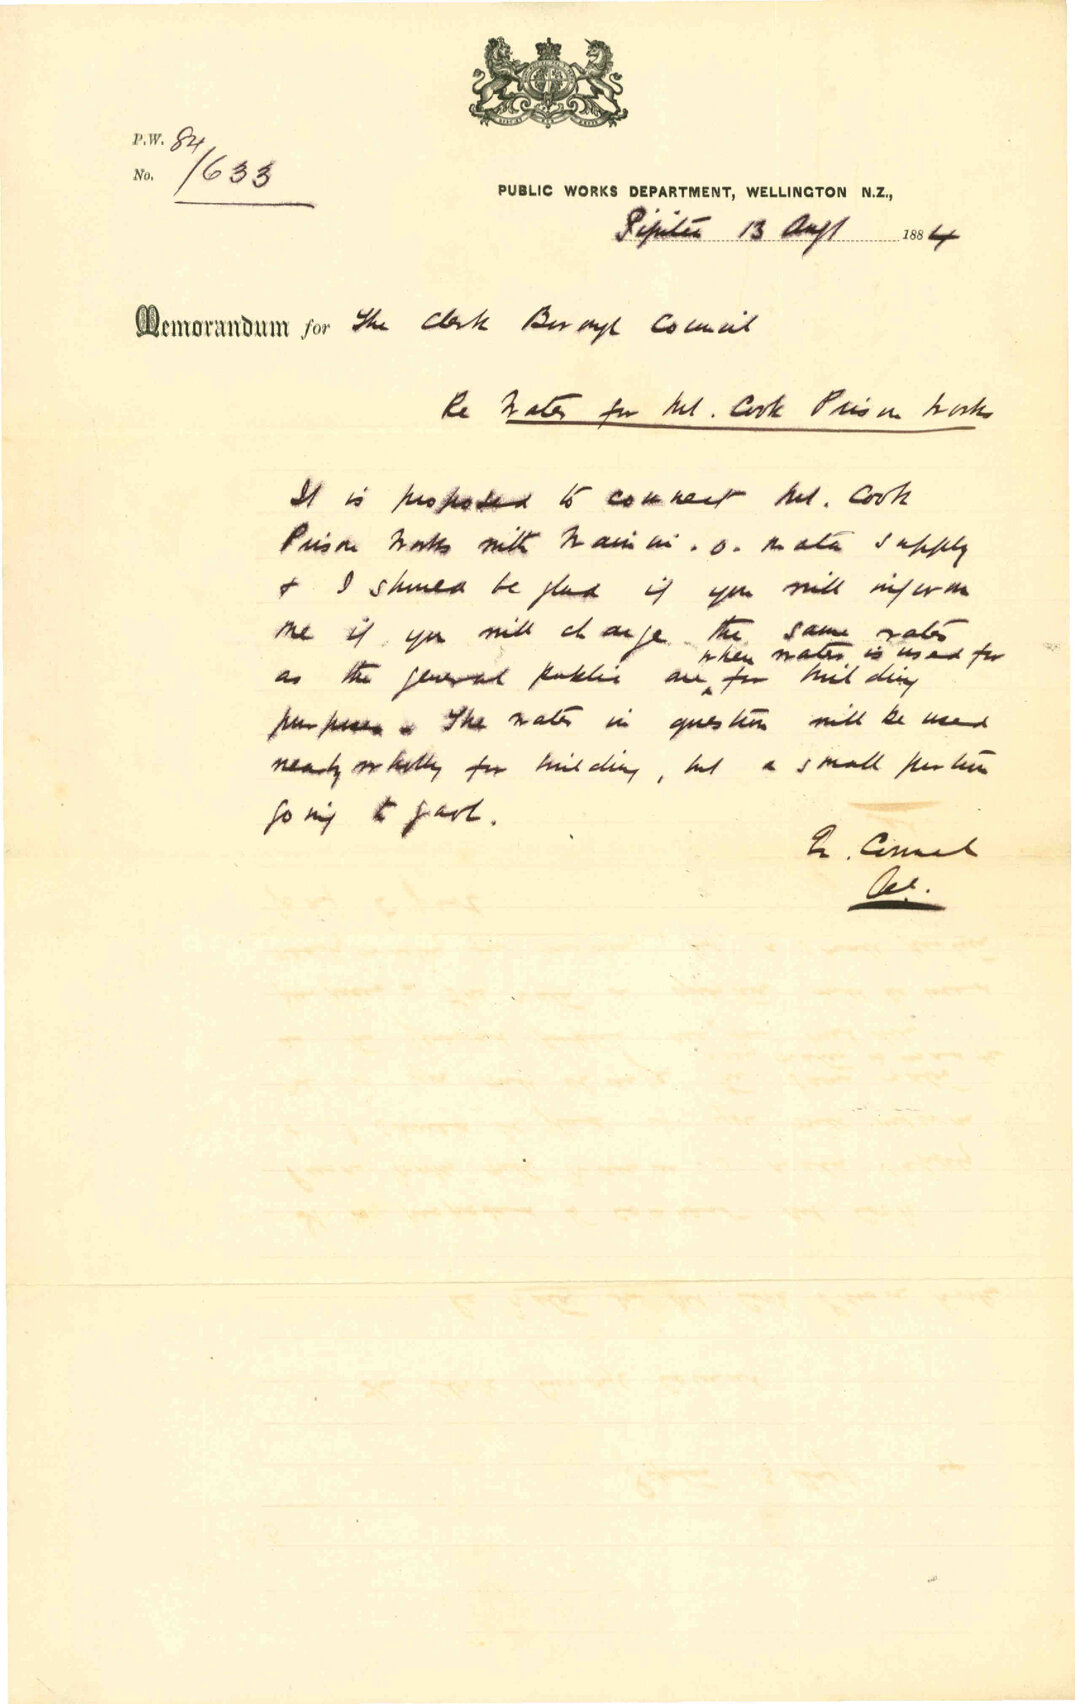 P.W. 84
No. /633
PUBLIC WORKS DEPARTMENT, WELLINGTON N.Z.,
Pipitea 13 Augt 1884
Memorandum for The Clerk Borough Council
Re Water for Mt. Cook Prison Works
It is proposed to connect Mt. Cook
Prison Works with Wainui-o-mata supply
& I should be glad if you will inform
me if you will charge the same rates
when water is used for
as the general public are for building
purposes. The water in question will be used
nearly wholly for building, but a small portion
going to gaol.